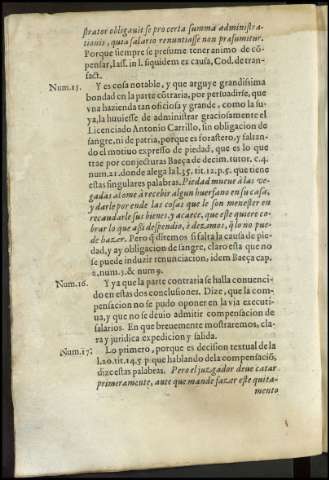 strator obligauit se pro certa summa administra-
tionis, quia salario renuntiasse non præsumitur.
Porque siempre se presume tener animo de cõ-
pensar, l. ass. in l. siquidem ex causa, Cod. de tran-
sact.
Num. 15. Y es cosa notable, y que arguye grandissima
bondad en la parte cõtraria, por persuadirse, que
vna hazienda tan oficiosa y grande, como la su-
ya, la huuiesse de administrar graciosamente el
Licenciado Antonio Carrillo, sin obligacion de
sangre, ni de patria, porque es forastero, y faltan-
do el motiuo expresso de piedad, que es lo que
trae por conjecturas Baeça de decim. tutor. c. 4.
num. 21. donde alega la l. 35. tit. 12. p. 5. que tiene
estas singulares palabras. Piedad mueue a las ve-
gadas a lome à recebir algun huerfano en su casa,
y darle por ende las cosas que le son menester en
recaudarle sus bienes, y acaece, que este quiere co-
brar lo que assi despendio, è dezimos, q̃ lo no pue-
de hazer. Pero q̃ diremos si falta la causa de pie-
dad, y ay obligacion de sangre, claro esta que no
se puede induzir renunciacion, idem Baeça cap.
2. num. 5. & num 9.
Num. 16. Y ya que la parte contraria se halla conuenci-
do en estas dos conclusiones. Dize, que la com-
pensacion no se pudo oponer en la via executi-
ua, y que no se deuio admitir compensacion de
salarios. En que breuemente mostraremos, cla-
ra y juridica expedicion y salida.
Num. 17: Lo primero, porque es decision textual de la
l. 20. tit. 14. 5 p. que hablando de la compensaciõ,
dize estas palabras. Pero el juzgador deue catar
primeramente, ante que mande fazer este quita-
mento